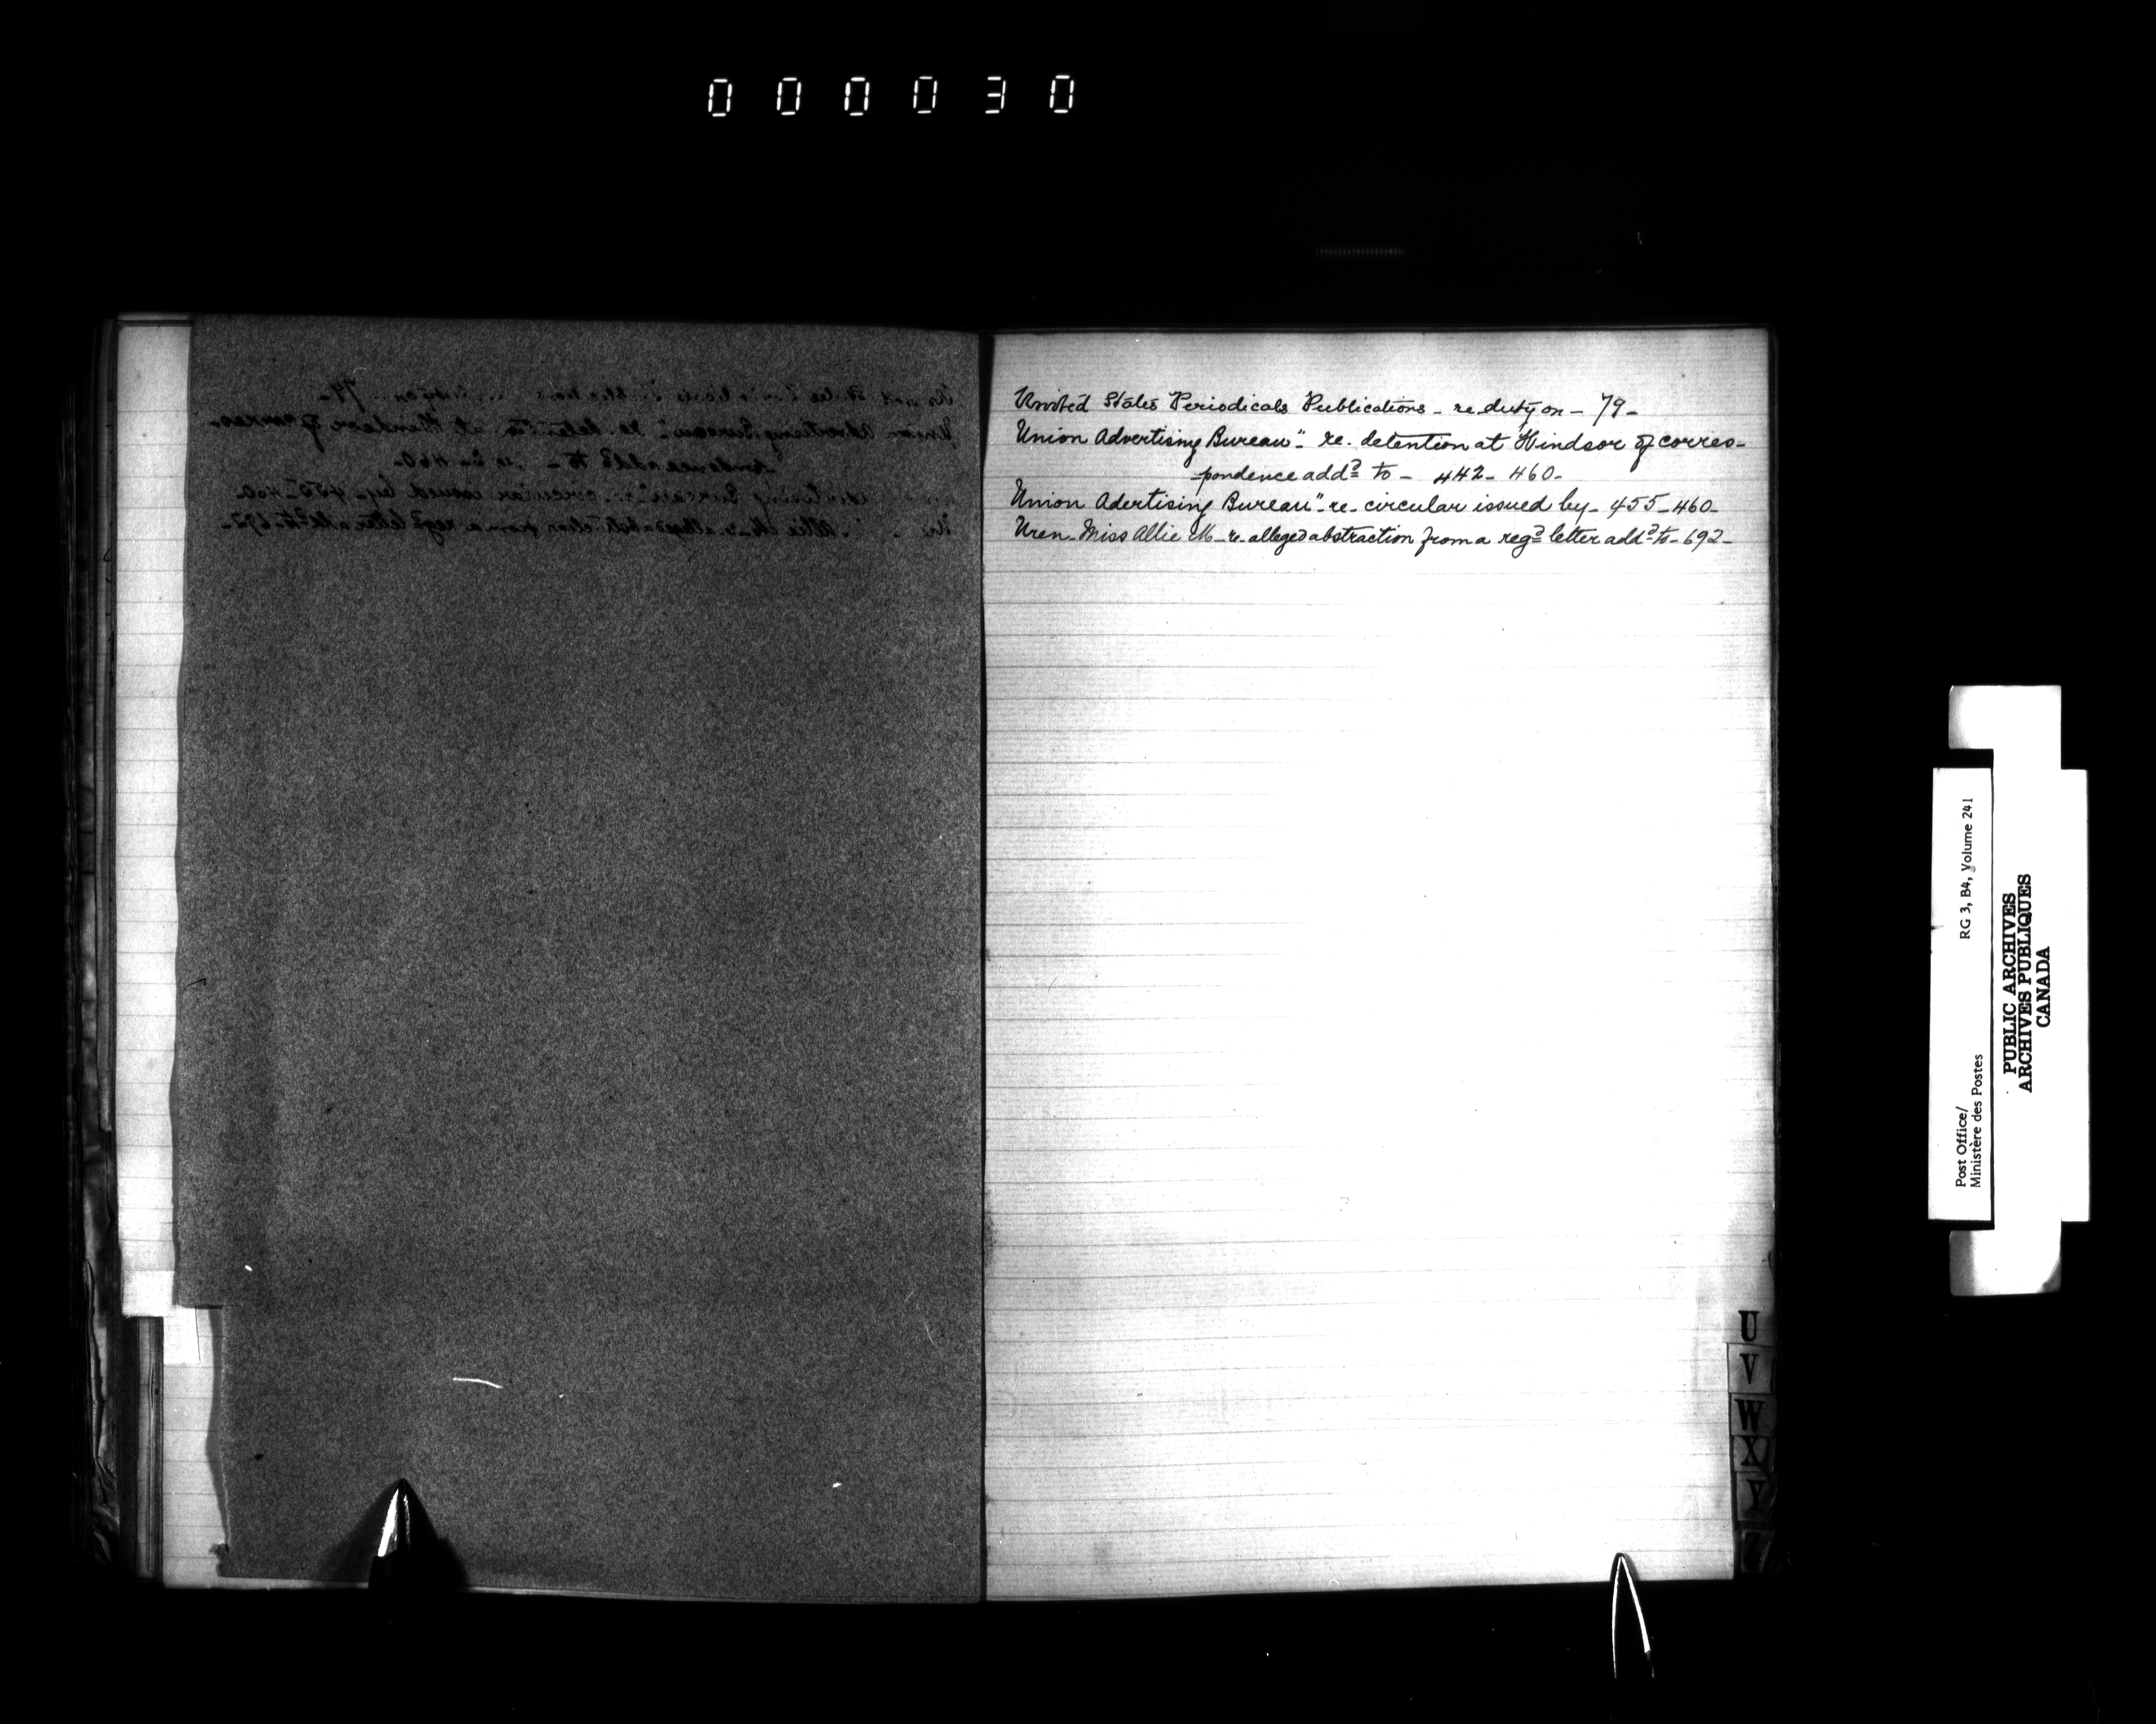 000030
United States Periodicals Publications - re. duty on - 79 -
Union Advertising Bureau" - re. detention at Windsor of corres-
pondence addd to - 442 - 460 -
Union Adertising Bureau" - re - circular issued by - 455 - 460 -
Uren - Miss Allie M - re. alleged abstraction from a regd letter addd to - 692 -
U
V
W
X
Y
Z
Post Office/
Ministère des Postes
RG 3, B4, Volume 241
PUBLIC ARCHIVES
ARCHIVES PUBLIQUES
CANADA